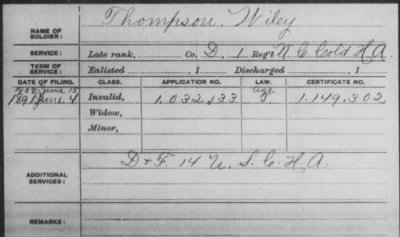 Thompson, Wiley
NAME OF SOLDIER:
SERVICE: Late rank, Co. D, 1 Reg't N C Cold H A.
TERM OF SERVICE: Enlisted , 1 Discharged , 1
DATE OF FILING. CLASS. APPLICATION NO. LAW. CERTIFICATE NO.
1908 June 15 age
1891 June 4 Invalid, 1.032.133 1.149.302
Widow,
Minor,
ADDITIONAL SERVICES: D & F 14 U. S. C. H A.
REMARKS: